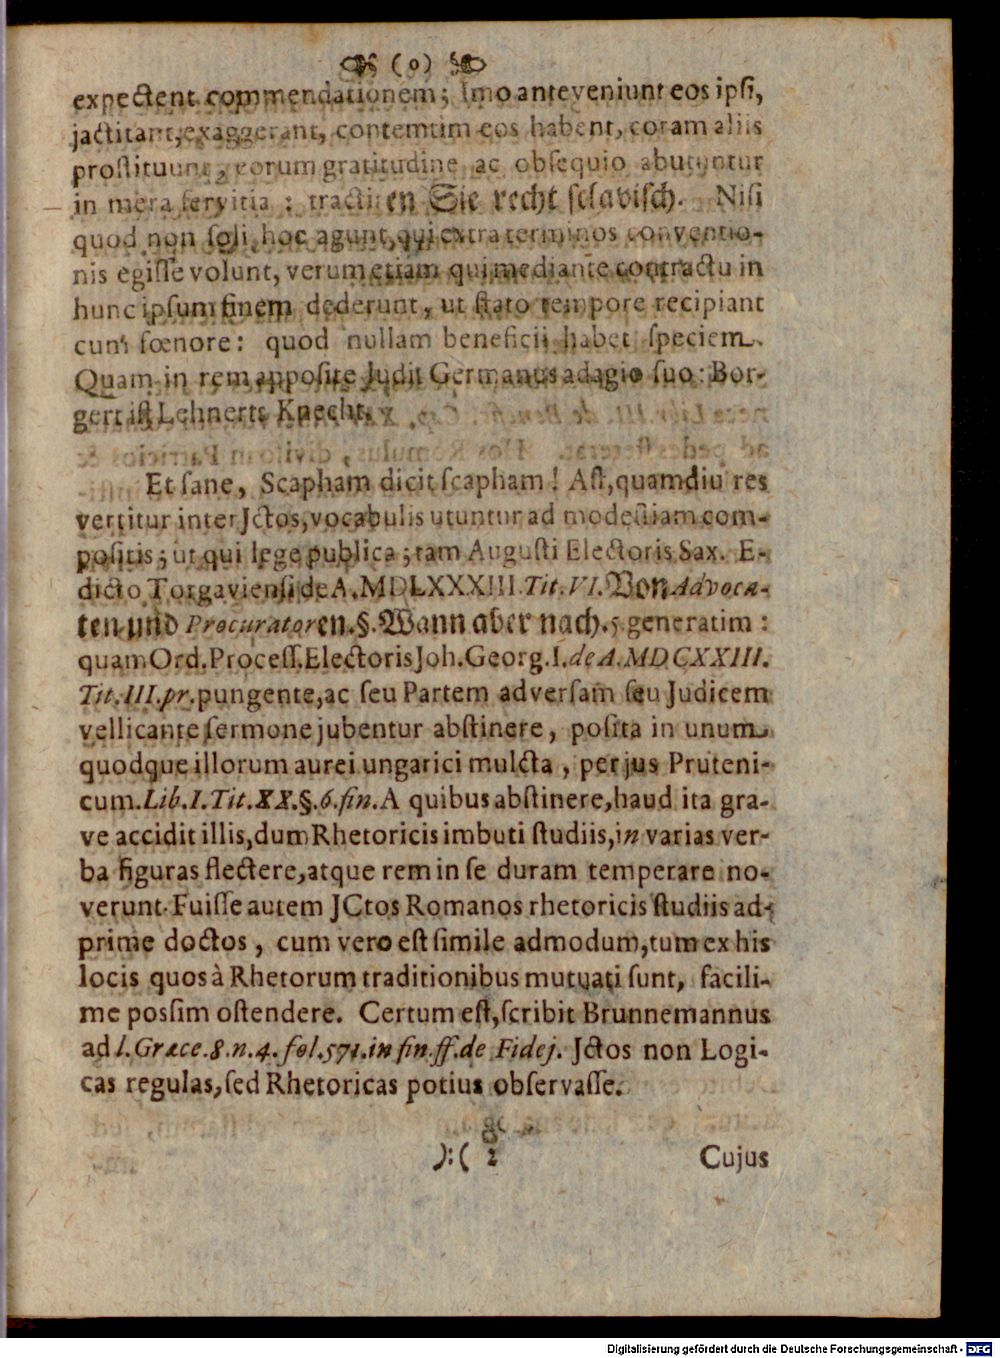 (o)
expectent commendationem; Imo anteveniunt eos ipſi,
jactitant, exaggerant, contemtim eos habent, coram aliis
proſtituunt, eorum gratitudine ac obſequio abutuntur
in mera ſervitia: tractiren Sie recht ſclaviſch. Niſi
quod non ſoli hoc agunt, qui extra terminos conventio-
nis egiſſe volunt, verum etiam qui mediante contractu in
hunc ipſum finem dederunt, ut ſtato tempore recipiant
cum fœnore: quod nullam beneficii habet ſpeciem.
Quam in rem appoſite ludit Germanus adagio ſuo: Bor-
gert iſt Lehnerts Knecht.
Et ſane, Scapham dicit ſcapham! Aſt, quamdiu res
vertitur inter Jctos, vocabulis utuntur ad modeſtiam com-
poſitis; ut qui lege publica; tam Auguſti Electoris Sax. E-
dicto Torgavienſi de A. MDLXXXIII. Tit. VI. Von Advoca-
ten und Procuratoren. §. Wann aber nach. 5. generatim:
quam Ord. Proceſſ. Electoris Joh. Georg. I. de A. MDCXXIII.
Tit. III. pr. pungente, ac ſeu Partem adverſam ſeu Judicem
vellicante ſermone jubentur abſtinere, poſita in unum
quodque illorum aurei ungarici mulcta, per jus Pruteni-
cum. Lib. I. Tit. XX. §. 6. fin. A quibus abſtinere, haud ita gra-
ve accidit illis, dum Rhetoricis imbuti ſtudiis, in varias ver-
ba figuras flectere, atque rem in ſe duram temperare no-
verunt. Fuiſſe autem JCtos Romanos rhetoricis ſtudiis ad-
prime doctos, cum vero eſt ſimile admodum, tum ex his
locis quos à Rhetorum traditionibus mutuati ſunt, facili-
me poſſim oſtendere. Certum eſt, ſcribit Brunnemannus
ad l. Græce. 8. n. 4. fol. 571. in fin. ff. de Fidej. Jctos non Logi-
cas regulas, ſed Rhetoricas potius obſervaſſe.
):( 2 Cujus
Digitalisierung gefördert durch die Deutsche Forschungsgemeinschaft - DFG